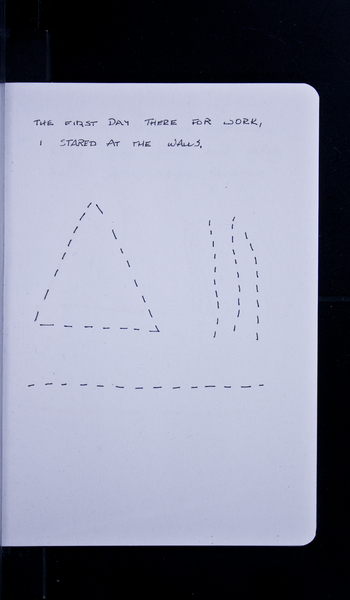 THE FIRST DAY THERE FOR WORK,
I STARED AT THE WALLS.